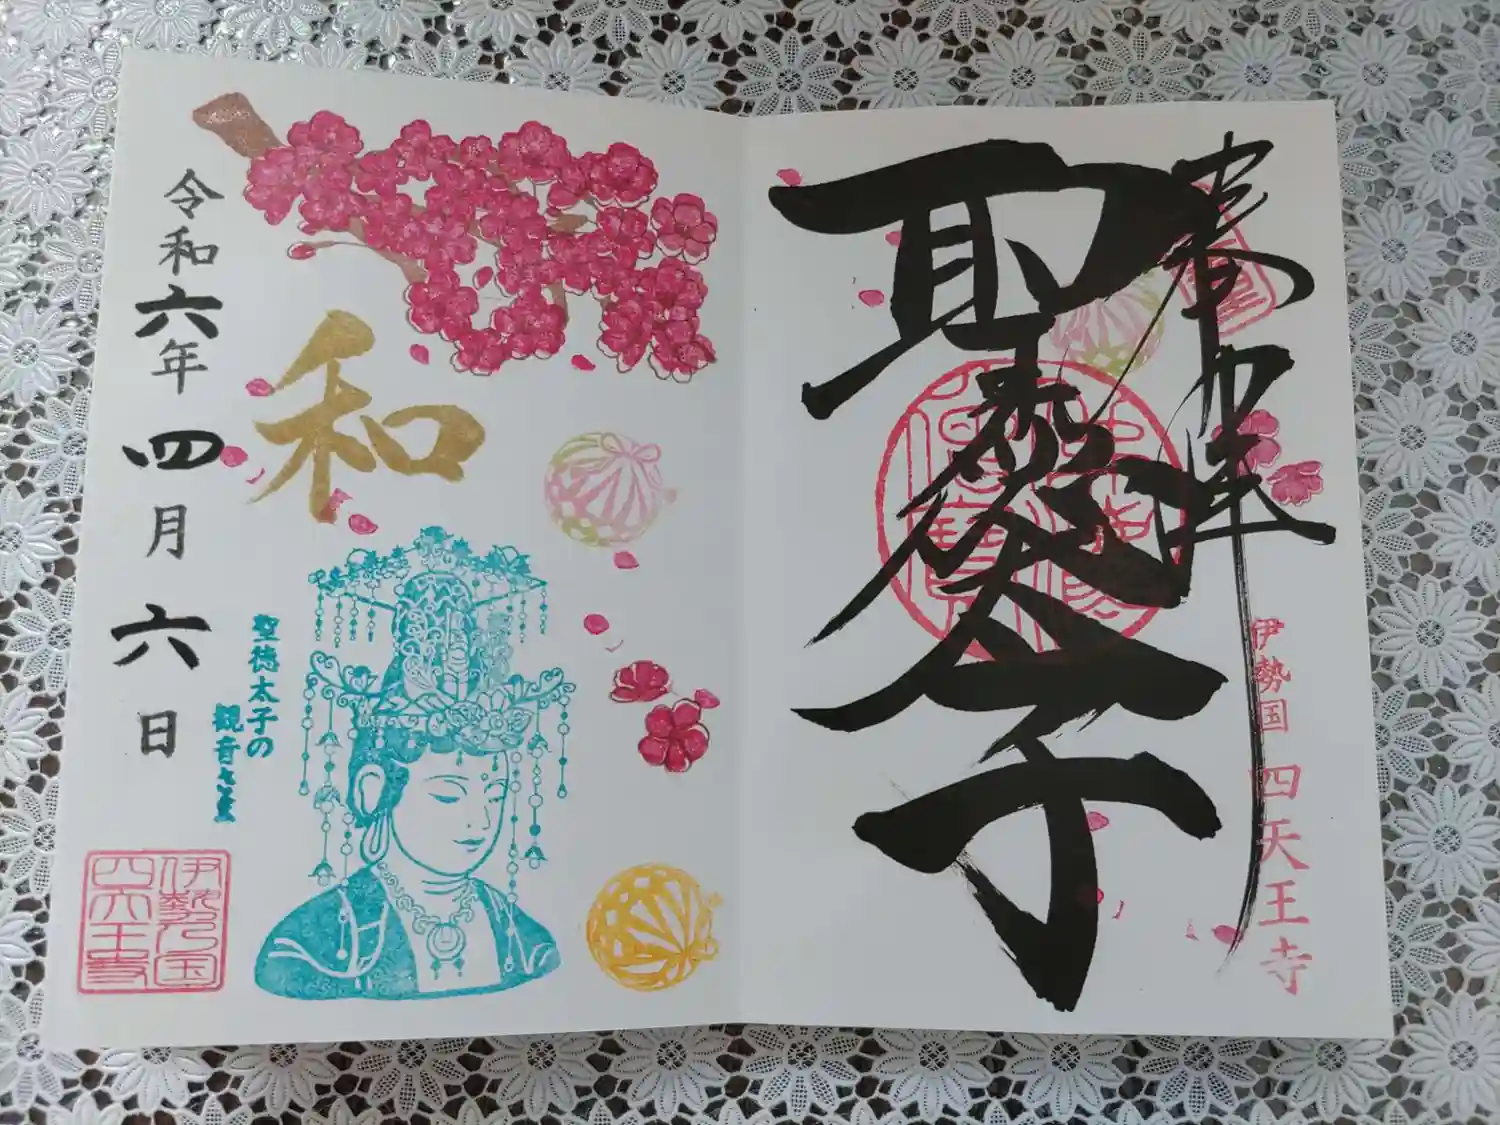 奉拝
聖徳太子
伊勢国 四天王寺
令和六年四月六日
和
聖徳太子の
観音さま
伊勢乃国
四天王寺